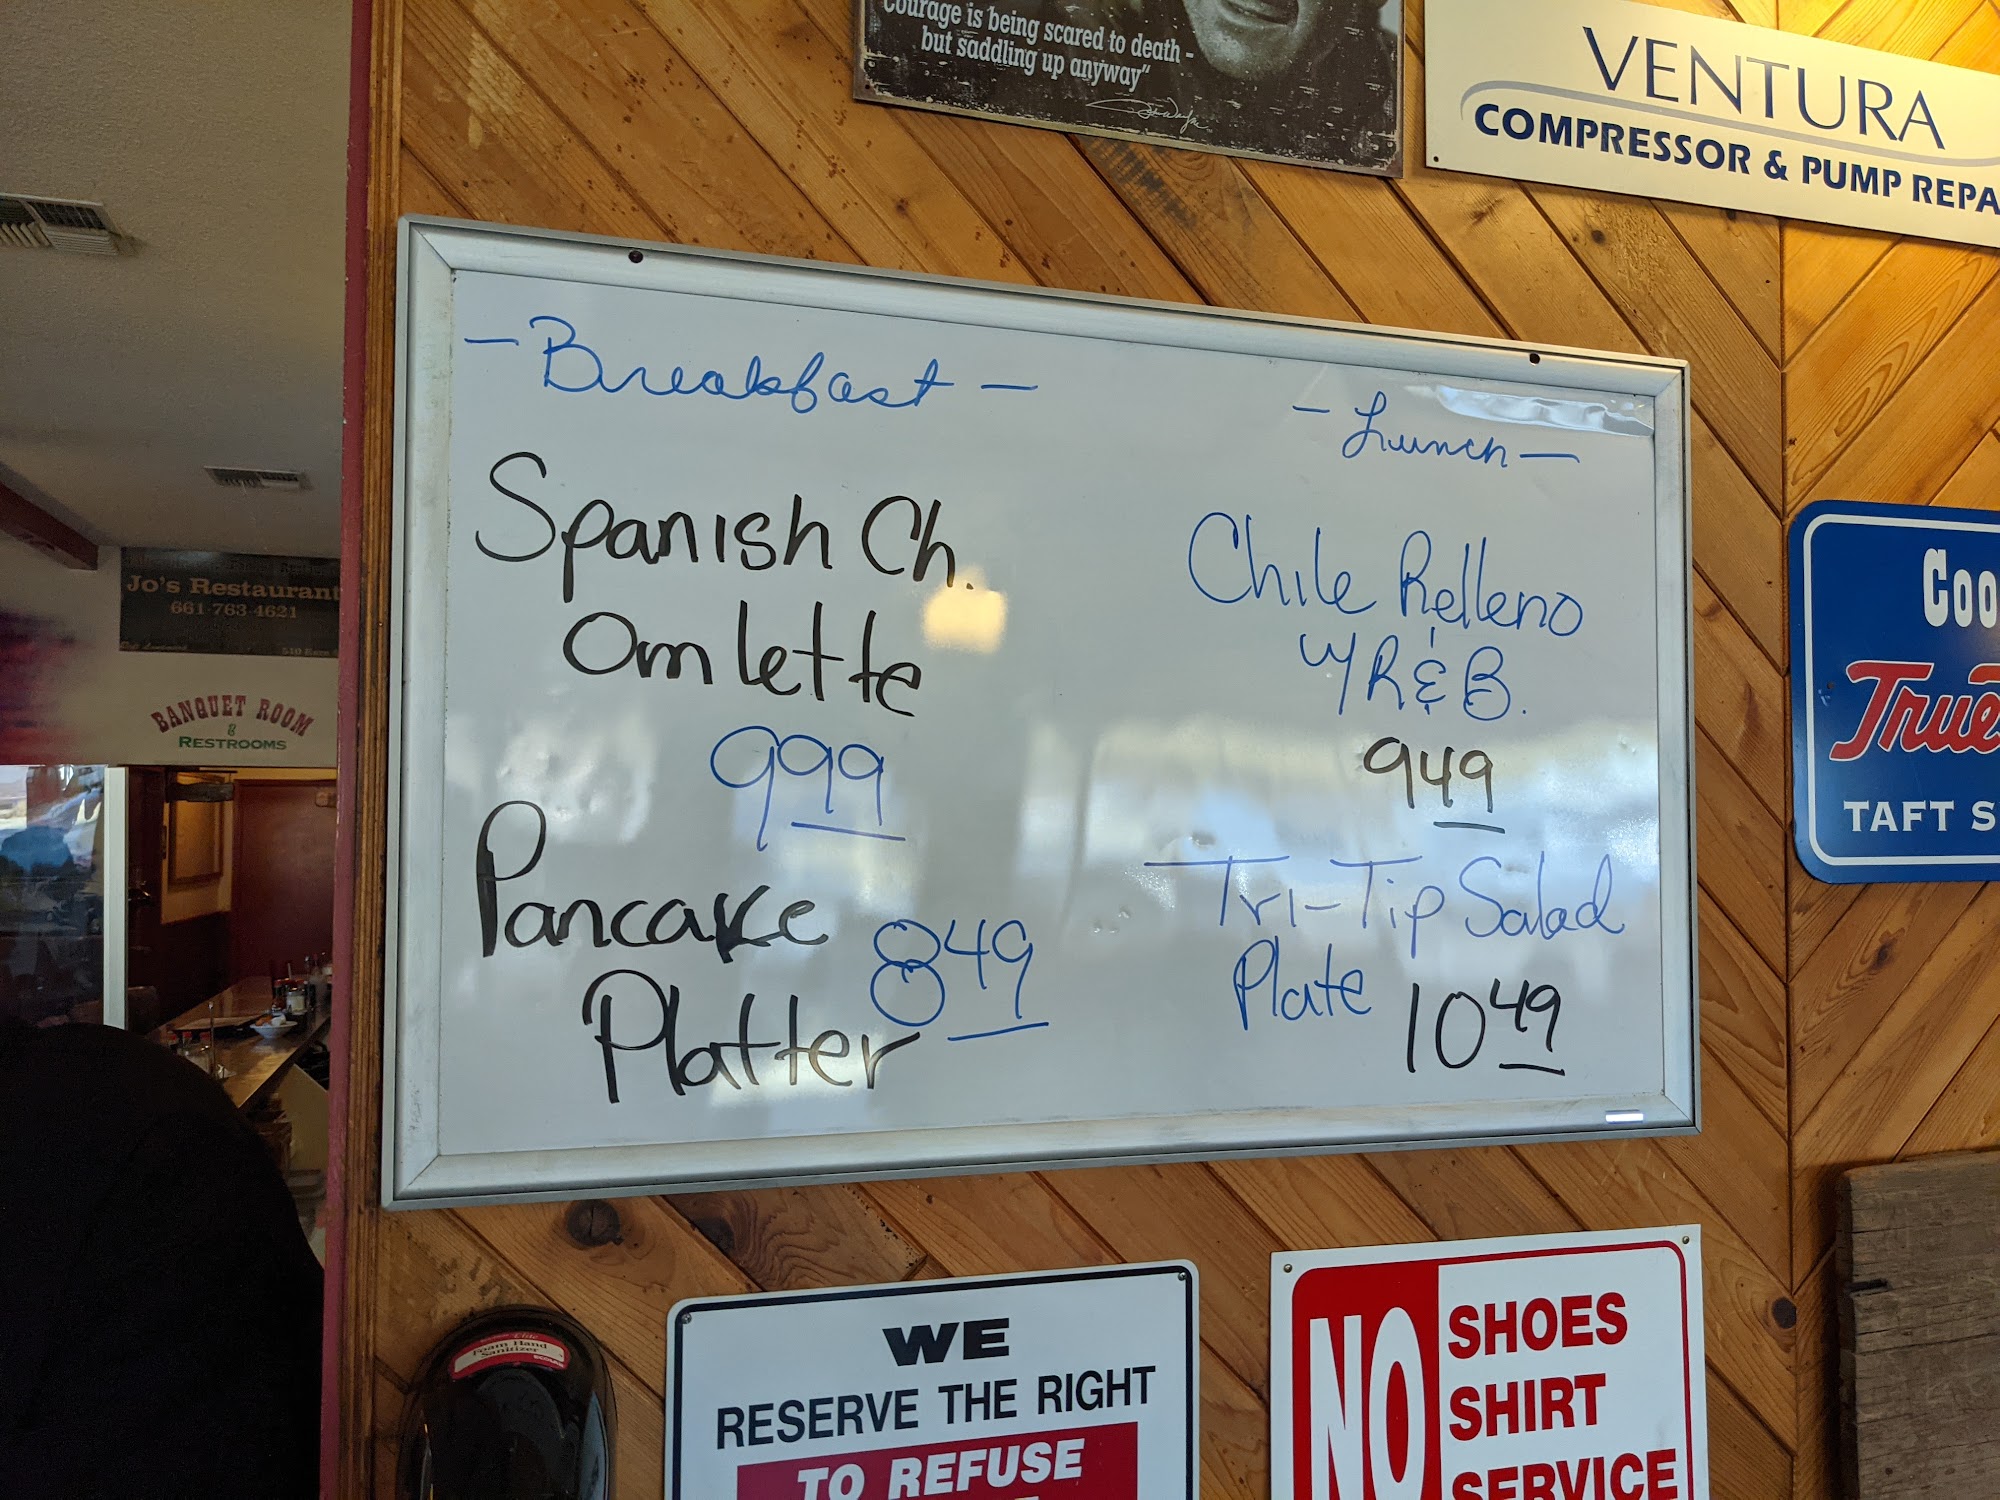 Courage is being scared to death -
but saddling up anyway"
VENTURA
COMPRESSOR & PUMP REPA
- Breakfast -
Spanish Ch.
Omlette
9 99
Pancake
Platter 8 49
- Lunch -
Chile Relleno
w/ R & B.
9 49
Tri-Tip Salad
Plate 10 49
Coo
True
TAFT S
Jo's Restaurant
661-763-4621
BANQUET ROOM
&
RESTROOMS
Foam Hand
Sanitizer
WE
RESERVE THE RIGHT
TO REFUSE
NO
SHOES
SHIRT
SERVICE